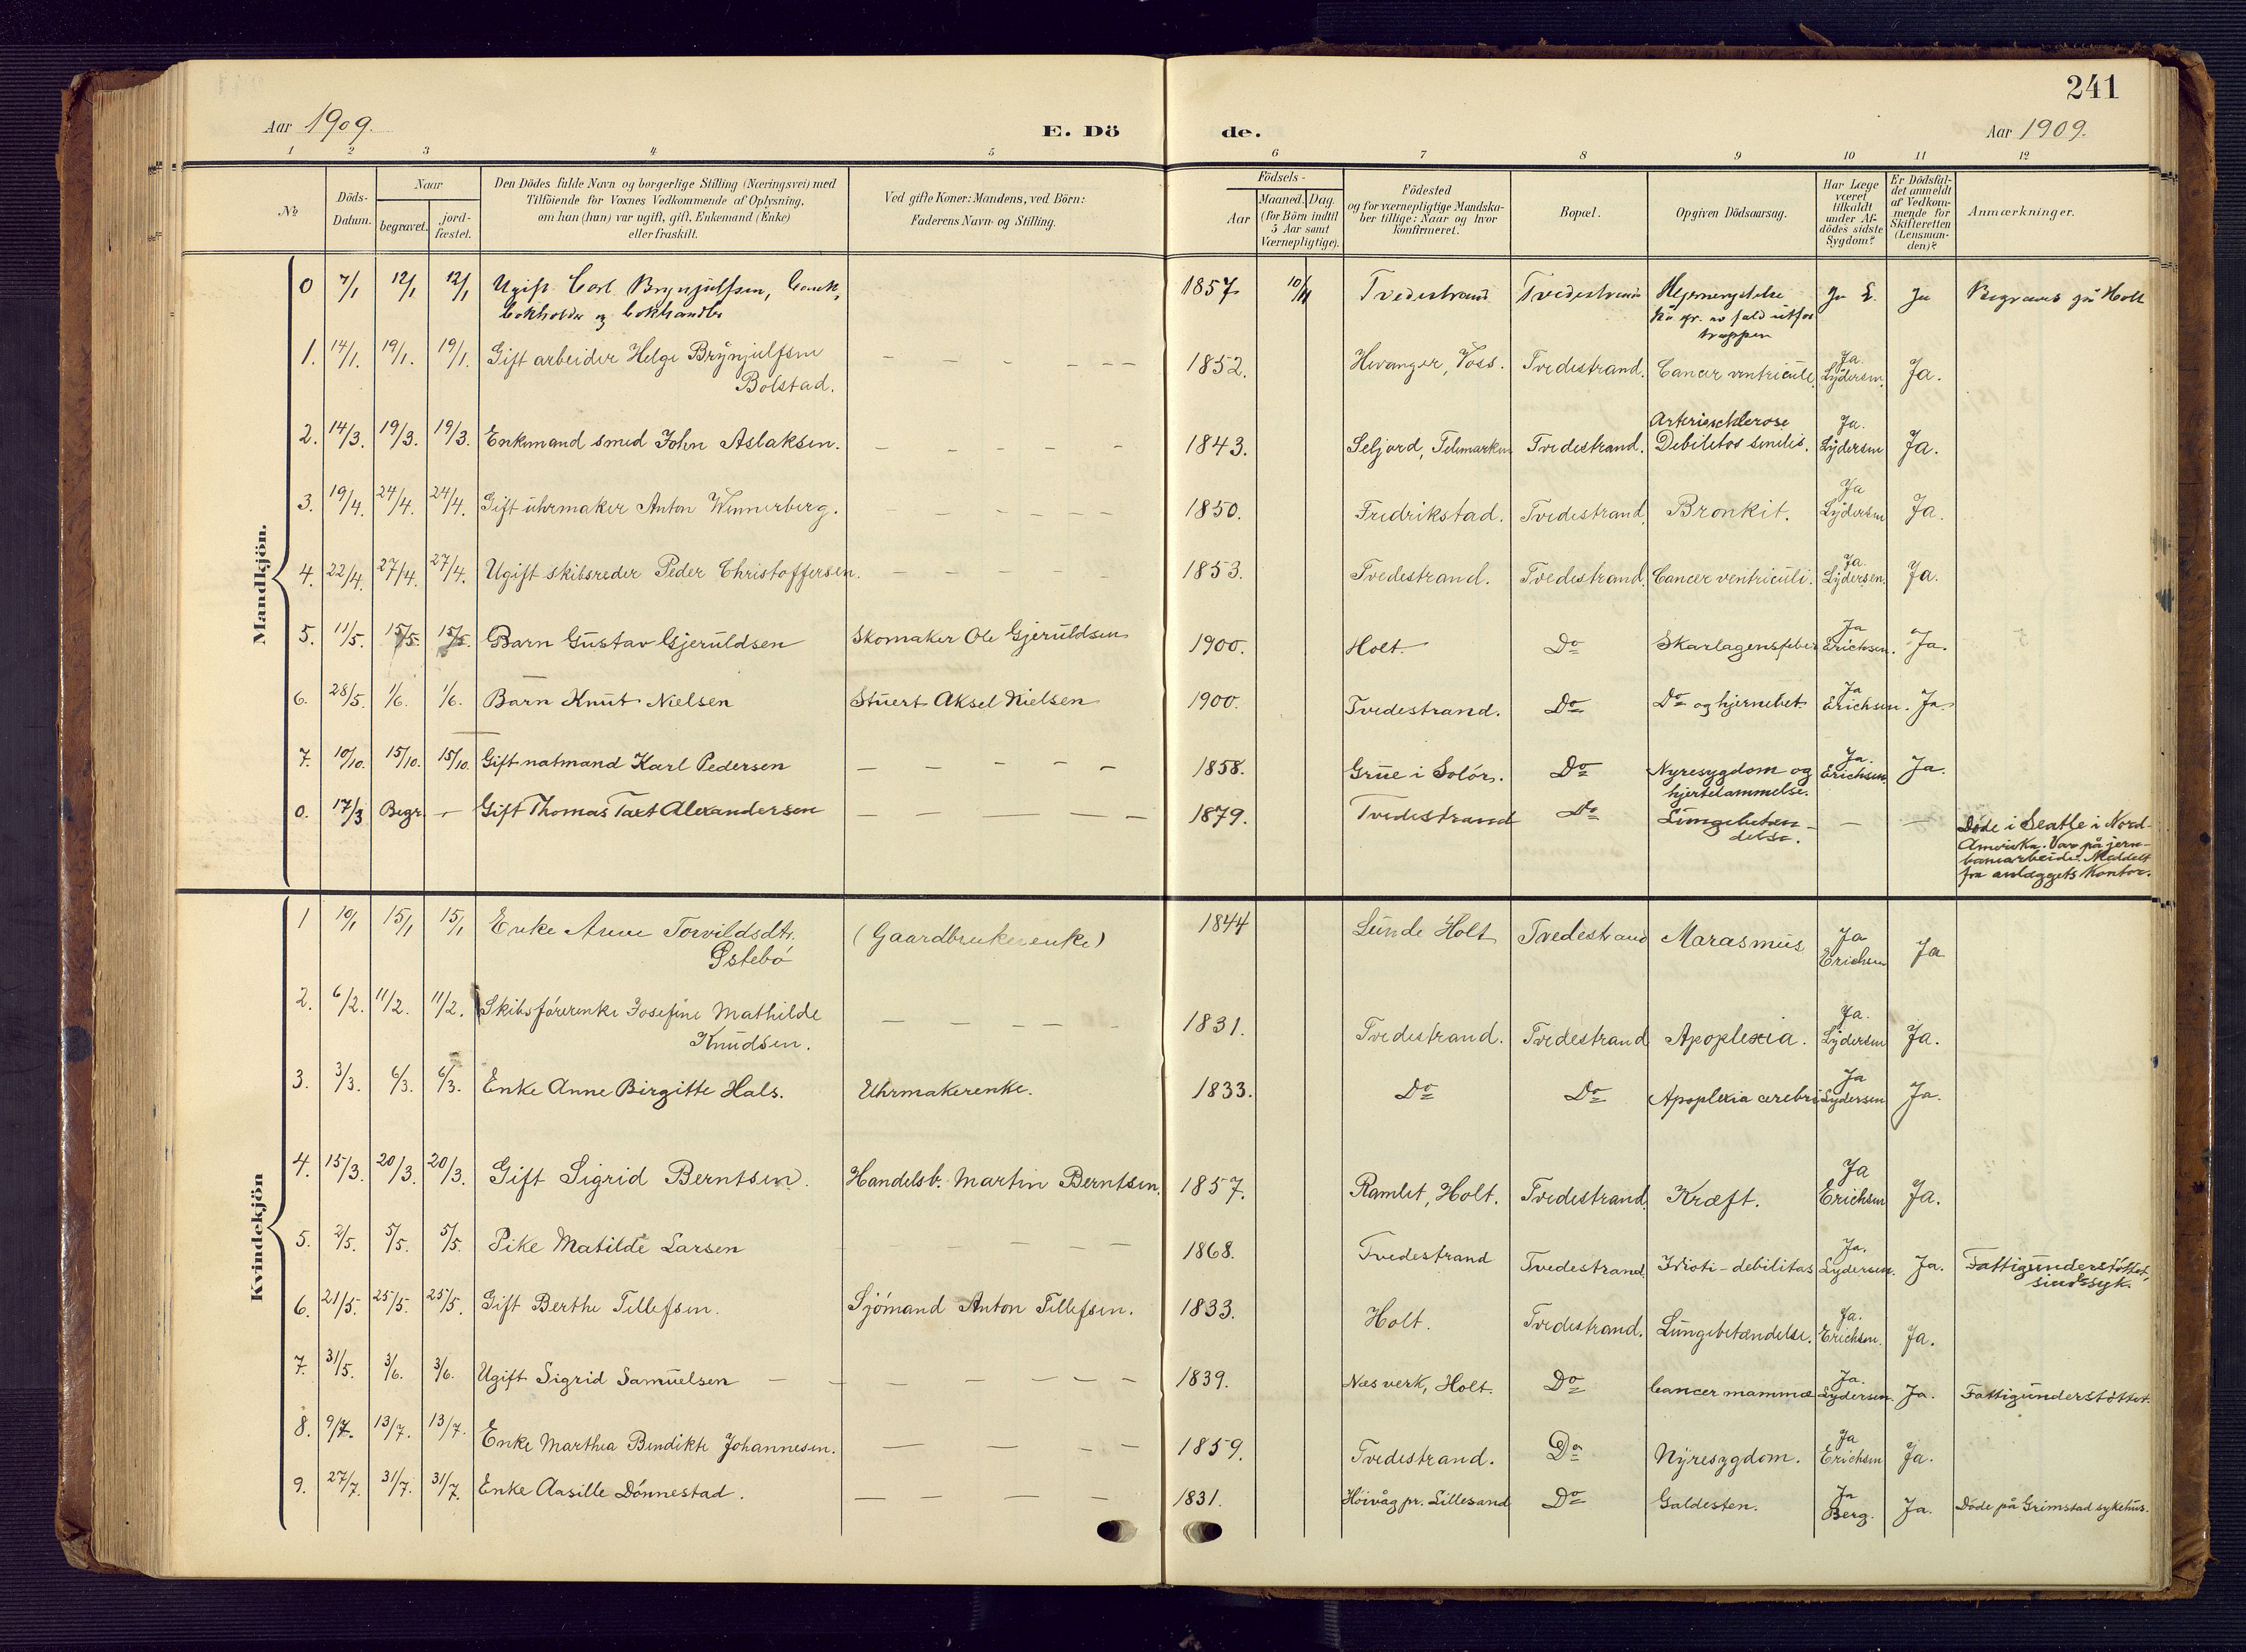 241
Aar 1909.
E. Dö
de.
Aar 1909.
1 2 3 4 5 6 7 8 9 10 11 12
No
Döds-
Datum.
Naar
begravet.
jord-
fæstet.
Den Dödes fulde Navn og borgerlige Stilling (Næringsvei) med
Tilföiende for Voxnes Vedkommende af Oplysning,
om han (hun) var ugift, gift, Enkemand (Enke)
eller fraskilt.
Ved gifte Koner: Mandens, ved Börn:
Faderens Navn og Stilling.
Födsels-
Aar
Maaned. Dag.
(for Börn indtil
5 Aar samt
Værnepligtige).
Födested
og for værnepligtige Mandska-
ber tillige: Naar og hvor
konfirmeret.
Bopæl.
Opgiven Dödsaarsag.
Har Læge
været
tilkaldt
under Af-
dödes sidste
Sygdom?
Er Dödsfal-
det anmeldt
af Vedkom-
mende for
Skifteretten
(Lensman-
den)?
Anmærkninger.
Mandkjön.
0 7/1 12/1 12/1 Ugift Carl Brynjulfsen, 1857 10/11 Tvedestrand Tvedestrand Hjernerystelse Ja L. Ja Begraves på Holt
bokholder og bokhandler
på gr. av fald utfor
trappen
1. 14/1. 19/1. 19/1. Gift arbeider Helge Brynjulfsen — — — — — — 1852. Voss. Tvedestrand. Cancer ventriculi. Ja. Lydersen. Ja.
Bolstad.
2. 14/3. 19/3. 19/3. Enkemand smed John Aslaksen. — — — — — 1843. Seljord, Telemarken Tvedestrand. Arteriesklerose Debilitas senilis. Ja. Lydersen Ja.
3. 19/4. 24/4. 24/4. Gift uhrmaker Anton Wennerberg. — — — — — — 1850. Fredrikstad. Tvedestrand. Bronkit. Ja Lydersen Ja.
4. 22/4. 27/4. 27/4. Ugift skibsreder Peder Christoffersen. — — — — — 1853. Tvedestrand. Tvedestrand. Cancer ventriculi. Ja. Lydersen. Ja.
5. 11/5. 15/5. 15/5. Barn Gustav Gjeruldsen Skomaker Ole Gjeruldsen 1900. Holt. Do Skarlagensfeber Ja Erichsen. Ja.
6. 28/5. 1/6. 1/6. Barn Knut Nielsen Stuert Aksel Nielsen 1900. Tvedestrand. Do Do og hjernebet. Ja Erichsen. Ja.
7. 10/10. 15/10. 15/10. Gift natmand Karl Pedersen — — — — — 1858. Grue i Solör. Do Nyresygdom og Ja. Erichsen. Ja.
hjertelammelse.
0. 17/3 Begr. — Gift Thomas Taxt Alexandersen — — — — — 1879. Tvedestrand Do Lungebeten- — —
delse.
Döde i Seatle i Nord-
Amerika. Var på jern-
banearbeide. Meddelt
fra anlæggets Kontor.
Kvindekjön
1 10/1 15/1 15/1 Enke Anne Torvildsdtr. (Gaardbrukerenke) 1844 Lunde Holt Tvedestrand Marasmus Ja Erichsen Ja
Östebö
2. 6/2. 11/2. 11/2. Skibsförerenke Josefine Mathilde — — — — — 1831. Tvedestrand. Tvedestrand Apoplexia. Ja. Lydersen Ja.
Knudsen.
3. 3/3. 6/3. 6/3. Enke Anne Birgitte Hals. Uhrmakerenke. 1833. Do Do Apoplexia cerebri Ja Lydersen Ja.
4. 15/3. 20/3. 20/3. Gift Sigrid Berntsen. Handelsb. Martin Berntsen. 1857. Ramlet, Holt. Tvedestrand. Kræft. Ja Erichsen Ja.
5. 2/5. 5/5. 5/5. Pike Matilde Larsen — — — — — 1868. Tvedestrand Tvedestrand. Idioti-debilitas Ja. Lydersen. Ja. Fattigunderstöttet,
sindssyk.
6. 21/5. 25/5. 25/5. Gift Berthe Tellefsen. Sjömand Anton Tellefsen. 1833. Holt. Tvedestrand. Lungebetændelse. Ja. Erichsen. Ja.
7. 31/5. 3/6. 3/6. Ugift Sigrid Samuelsen — — — — — — — 1839. Næs verk, Holt. Do Cancer mammæ Ja. Lydersen. Ja. Fattigunderstöttet.
8. 9/7. 13/7. 13/7. Enke Marthea Bendikte Johannesen. — — — — 1859. Tvedestrand. Do Nyresygdom. Ja Erichsen Ja.
9. 27/7. 31/7. 31/7. Enke Aasille Dönnestad. — — — — 1831. Höivåg pr. Lillesand Do Galdesten. Ja Berg. Ja. Döde på Grimstad sykehus.